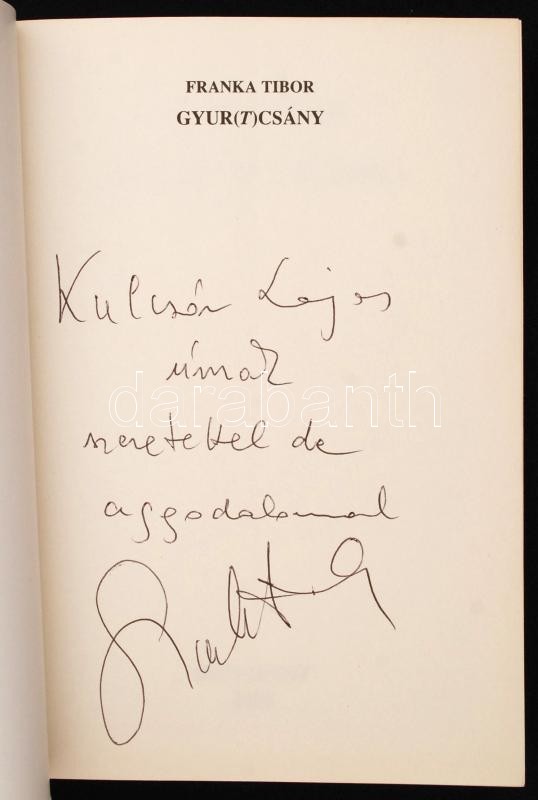 FRANKA TIBOR
GYUR(T)CSÁNY
Kulcsár Lajos
úrnak
darabanth
szeretettel de
aggodalommal